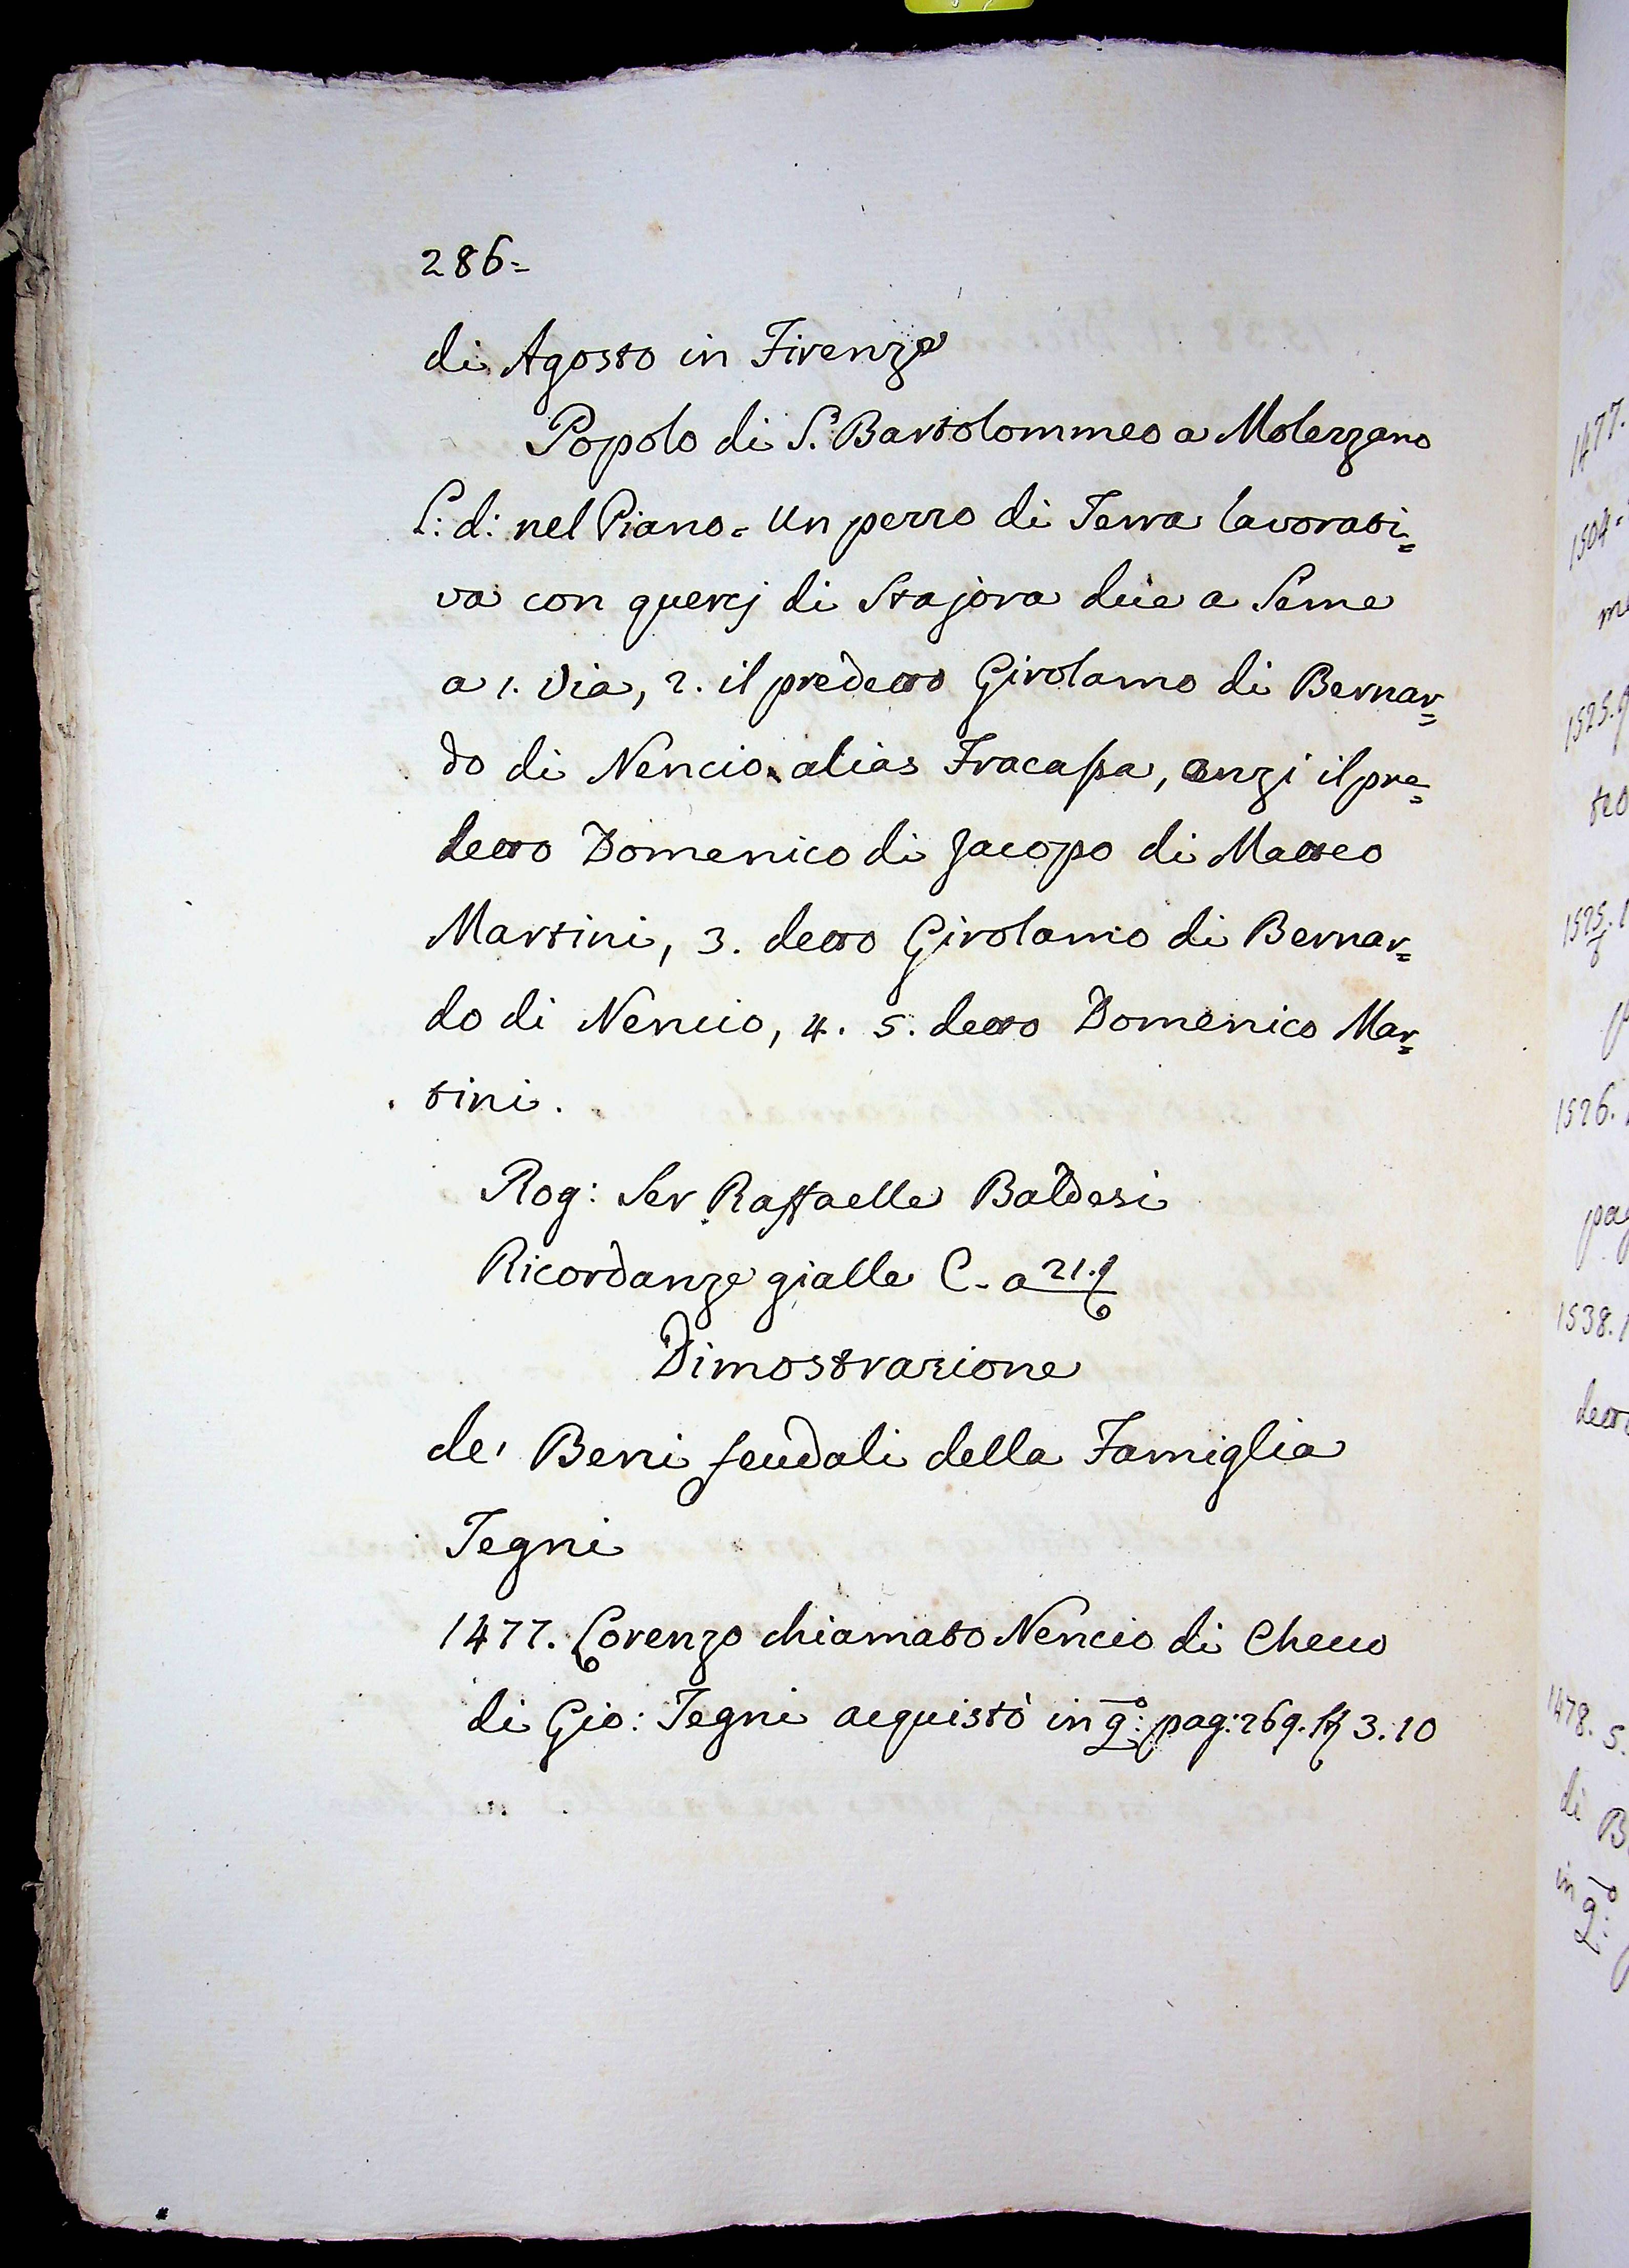 286=
di Agosto in Firenze
Popolo di S. Bartolommeo a Molezzano
L: d: nel Piano = Un pezzo di Terra lavorati=
va con quercj di Stajora due a Seme
a 1. Via, 2. il predetto Girolamo di Bernar=
do di Nencio alias Fracassa, anzi il pre=
detto Domenico di Jacopo di Matteo
Martini, 3. detto Girolamo di Bernar=
do di Nencio, 4. 5. detto Domenico Mar=
tini.
Rog: Ser Raffaelle Baldesi
Ricordanze gialle C. a 21.
Dimostrazione
de' Beni feudali della Famiglia
Tegni
1477. Lorenzo chiamato Nencio di Checco
di Gio: Tegni acquistò in q:to pag: 269. 3.10
1477.
1504.
1525.
1525.
1526.
pag
1538.
1478. 5.
di B
in q:to